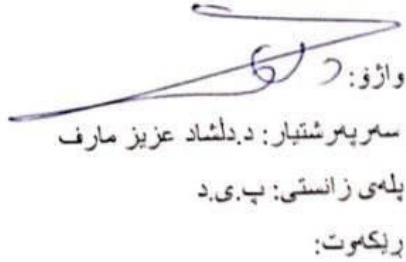 واژۆ:
سەرپەرشتیار: د.دڵشاد عزیز مارف
پلەی زانستی: پ.ی.د
ڕێکەوت: